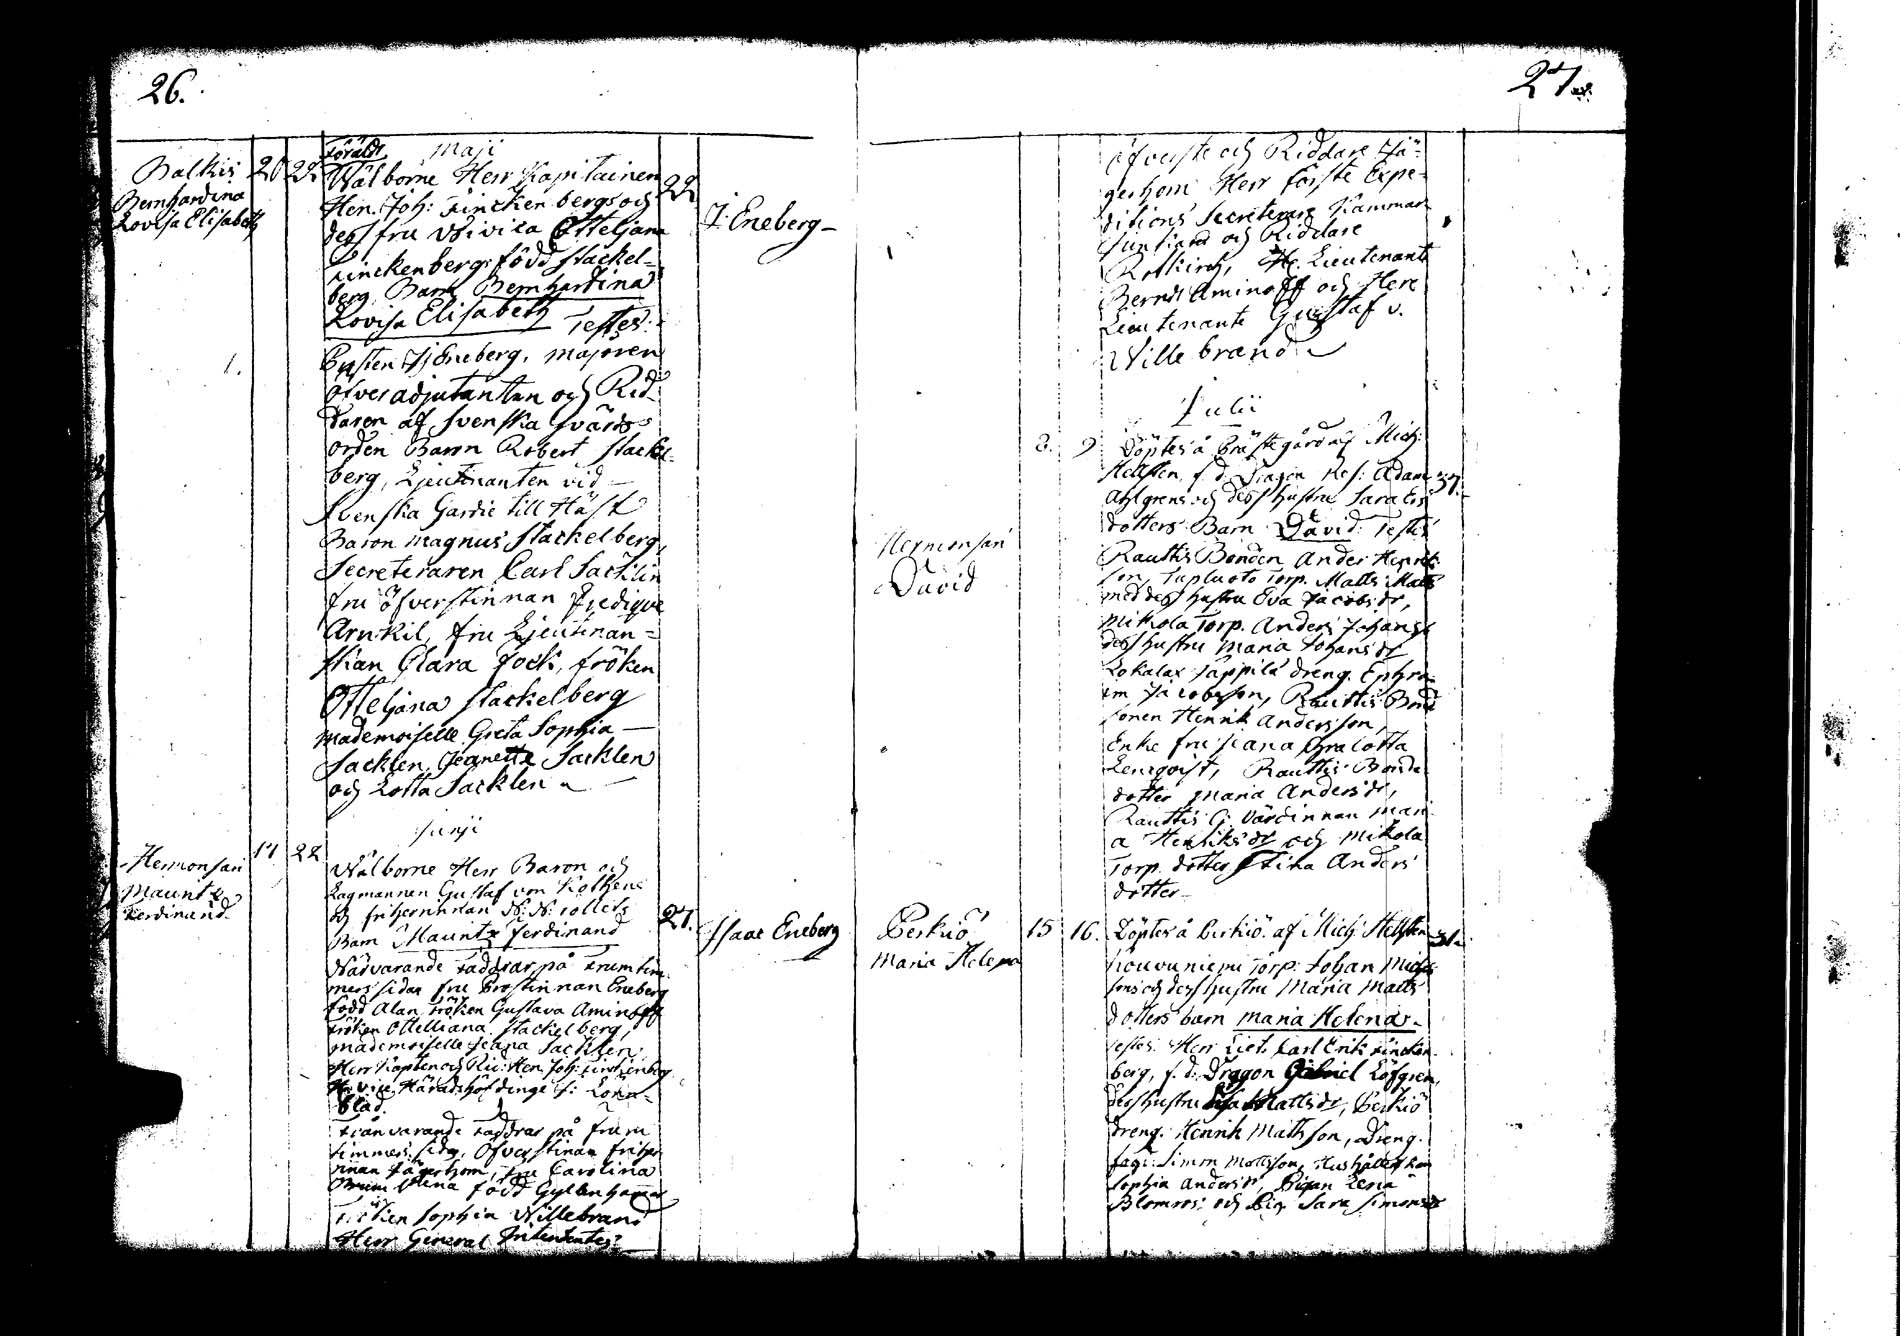 26.
Föräldr Maji
Balkis 20 22.
Bernhardina
Lovisa Elisabeth
Wälborne Herr Kapitainen 22
Hen. Joh: Finckenbergs och
dess fru Wivica Otteljana
Finckenbergs född Stackel=
berg Barn Bernhardina
Lovisa Elisabeth Testes:
J: Eneberg
Prosten Is. Eneberg, Majoren
öfveradjutanten och Rid-
daren af Svenska Svärds
orden Baron Robert Stackel-
berg, Ljeutenanten vid
Svenska Gardie till Häst
Baron Magnus Stackelberg,
Secreteraren Carl Sacklin
fru Öfverstinnan Fredique
Arnkil, fru Ljeutenan=
skan Clara Fock, fröken
Otteljana Stackelberg
Mademoiselle Greta Sophia
Sacklen, Jeanette Sacklen
och Lotta Sacklen
Junji
Hermonsari 17 22
Mauntz
Ferdinand
Wälborne Herr Baron och
Lagmannen Gustaf von Kothens
och friherinnan N: N: Tollets
Barn Mauntz Ferdinand 27.
Isaac Eneberg
Närvarande Faddrar på Frumtim
mers sidan fru Prostinnan Eneberg
född Alan, Fröken Gustava Aminoff
Fröken Ottelliana Stackelberg,
Mademoiselle Jeana Sacklen
Herr Kapten och Rid: Hen. Joh: Finckenberg
Hr vice Häradshöfdinge Lönn=
blad.
Frånvarande Faddrar på frun
timmers sida, Öfverstinan friher
rinnan Jägerhorn, fru Carolina
född Gyllenhamar
Fröken Sophia Willebrand
Herr General Intendentes
27.
Öfverste och Riddare Jä=
gerhorn Herr förste Expe=
ditions Secreterare Kammar
Junkaren och Riddare
Rotkirch, Hr. Lieutenante
Bernds Aminoff och Herr
Lieutenante Gustaf v.
Willebrand
Julii
Hermonsari
David
8. 9 Döptes å Prästegård af Mich:
Hellsten, f. d. Dragon Adam 37.
Ahlgrens och dess hustru Sara Ers
dotters Barn David Testes
Rauttis Bonden Ander Henrik
son, Tupluoto Torp. Matts Matts
med dess hustru Eva Jacobsdr,
Mikola Torp. Anders Johanss
dess hustru Maria Johansdr
Lokalax Jappila dreng. Ephra
im Jacobsson, Rauttis Bond
sonen Henrik Andersson,
Enke fru
Lenqvist, Rauttis Bonde
dotter Maria Andersdr,
Rauttis G: värdinnan Mari
a Henriksdr och Mikola
Torp. dotter Stina Anders
dotter
Perkiö 15 16.
Maria Helena
Döptes å Perkiö af Mich Hellsten 31.
Kouvuniemi Torp. Johan Michels
sons och dess hustru Maria Matts
dotters barn Maria Helena
Testes: Herr Liet. Carl Erik Fincken
berg, f. d. Dragon Gabriel Löfgren,
dess hustru Mattsdr, Perkiö
dreng. Henrik Mattsson, dreng.
Simon Mattsson, Hushållerskan
Sophia Andersdr, Pigan Lena
Blomros och Pig. Sara Simonsdr